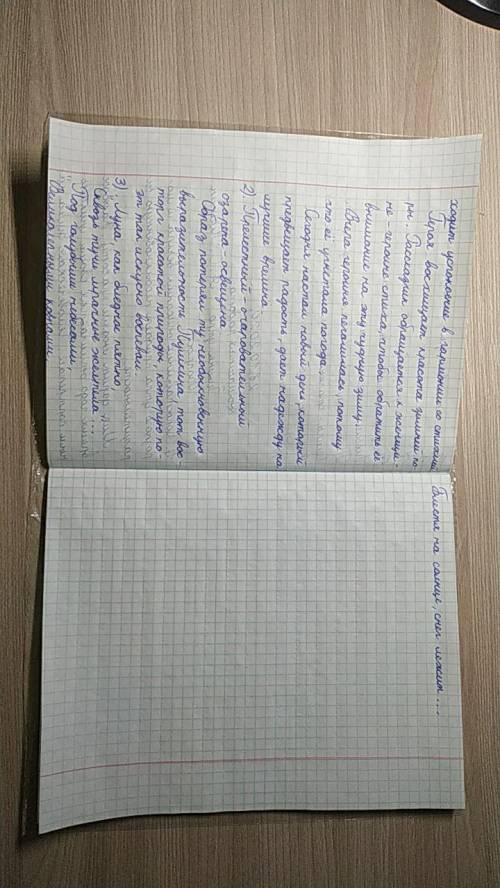 ходит успокоение в гармонии со стихами
Героя восхищает красота зимней по-
ры. Рассказчик обращается к женщи-
не - героине стиха, чтобы обратить её
внимание на эту чудную зиму.
Вчера героиня печалилась, потому
что её угнетала погода.
Сегодня настал новый день, который
предвещает радость, дает надежду на
лучшие времена
2) Прелестный - очаровательный
озарена - освещена
Образ потерял ту необыкновенную
выразительность Пушкина, тот вос-
торг красотой природы, которую по-
эт так искусно воспевал.
3) „Луна, как бледное пятно,
Сквозь тучи мрачные желтела ...
„Под голубыми небесами
Великолепными коврами,
Блестя на солнце, снег лежит ...